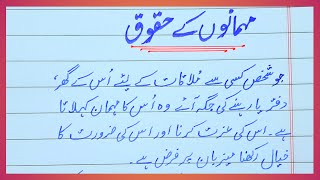 مہمانوں کے حقوق
جو شخص کسی سے ملاقات کے لیٔے اُس کے گھر،
دفتر یا رہنے کی جگہ آئے وہ اُس کا مہمان کہلاتا
ہے۔ اس کی عزت کرنا اور اس کی ضرورت کا
خیال رکھنا میزبان پر فرض ہے۔